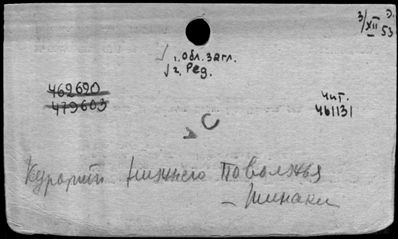 3/XII 53
1. Обл. загл.
2. Ред.
462690
479603
Чит.
461131
С
Курорты нижнего Поволжья
– Минаки